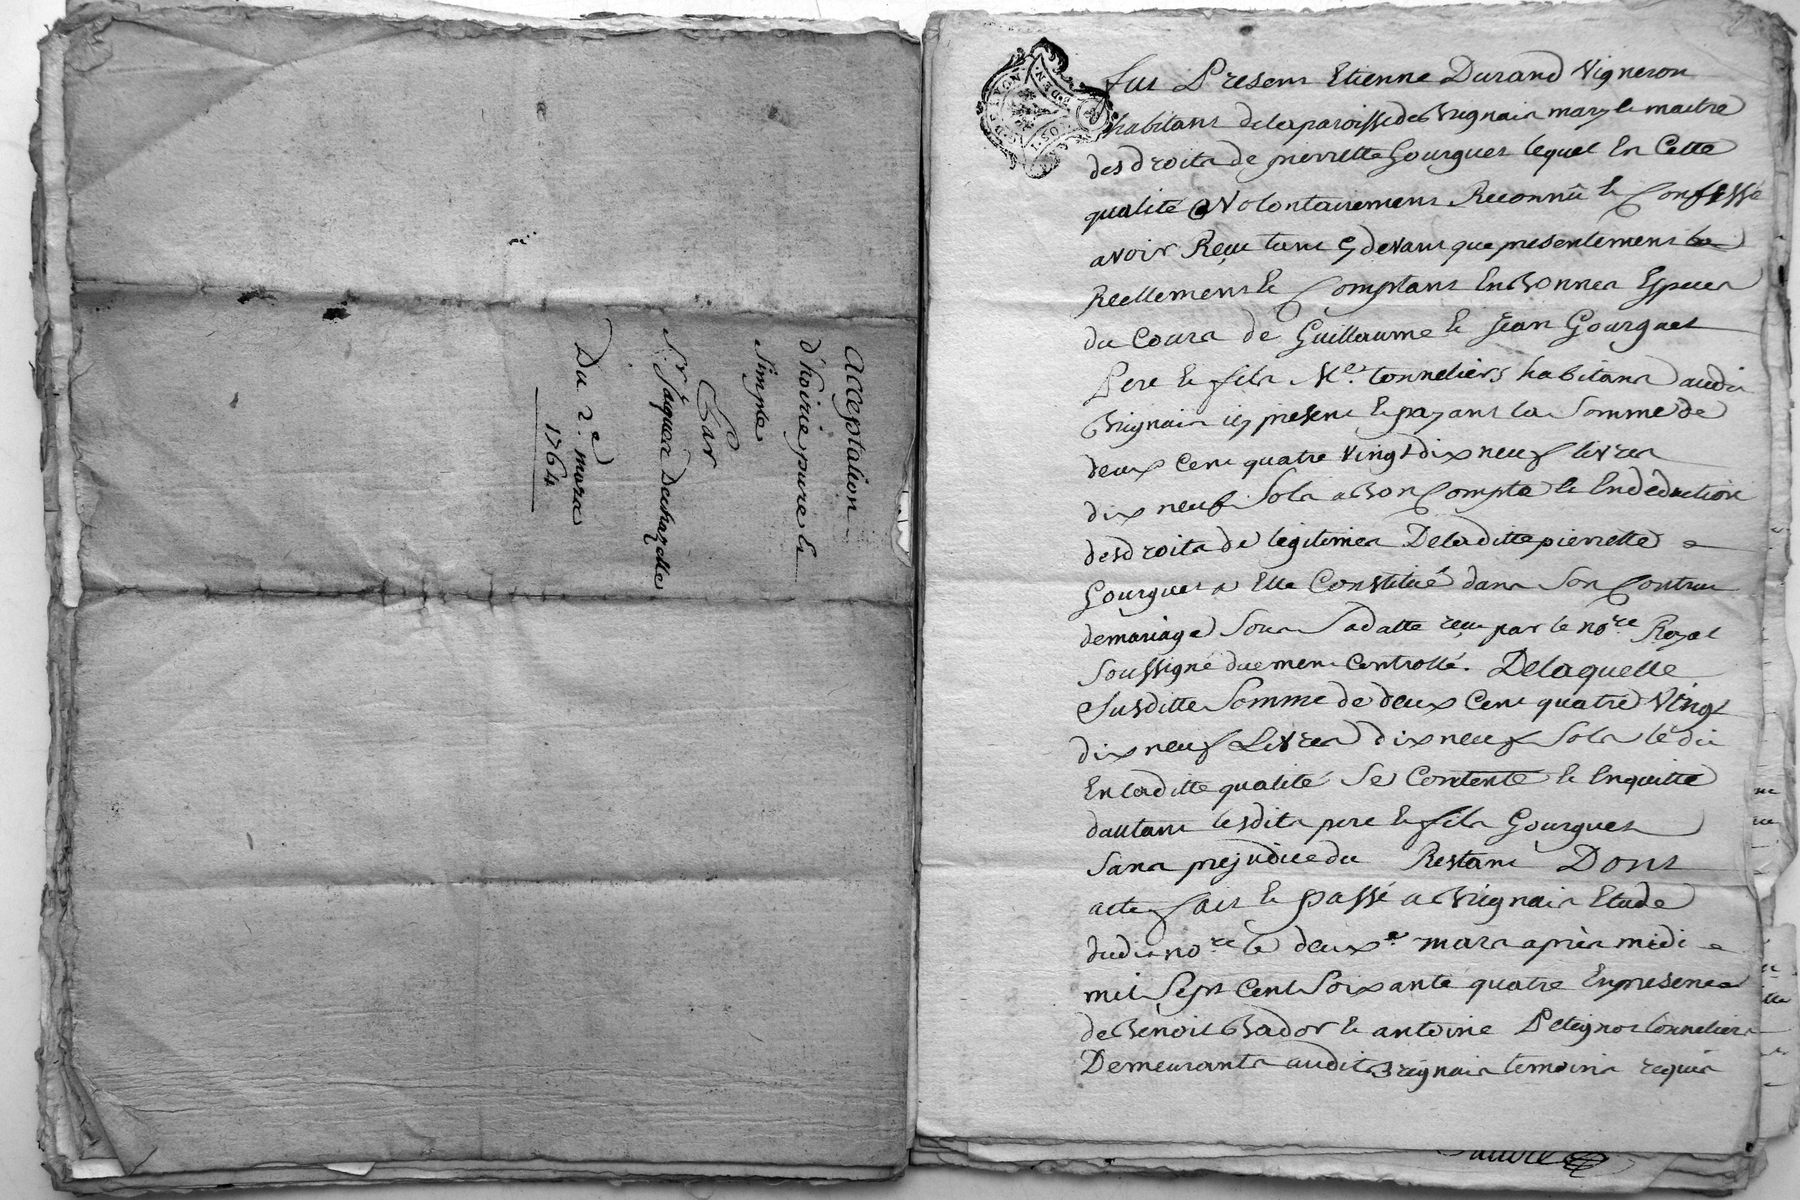 acceptation
d'hoirie pure &
simple
Par
Sr. Jaques Decharelle
Du 2.e mars
1764
fut Present Etienne Durand Vigneron
habitant de la paroisse de Brignais mary & maitre
des droits de pierrette Gourguet lequel En Cette
qualité a Volontairement Reconnû & Confessé
avoir Reçu tant cy devant que presentement
Reellement & Comptant En Bonnes Especes
du Cours de Guillaume & Jean Gourguet
Pere & fils Mes. tonneliers habitans audit
Brignais icy present & payant la Somme de
deux Cent quatre Vingt dix neuf livres
dix neuf Sols a Bon Compte & En deduction
des droits de legitimes De laditte pierrette
Gourguet a Elle Constitué dans Son Contrat
de mariage Sous Sa datte reçu par le nore. Royal
Soussigné duement Controllé. De laquelle
Susditte Somme de deux Cent quatre Vingt
dix neuf Livres dix neuf Sols le dit
En laditte qualité Se Contente & En quitte
dautant lesdits pere & fils Gourguet
Sans prejudice du Restant Dont
acte fait & passé a Brignais Etude
dudit nore. le deuxe. mars après midi
mil Sept Cent Soixante quatre En presence
de Benoit Bador & antoine Peteignot tonneliers
Demeurants audit Brignais temoins requis